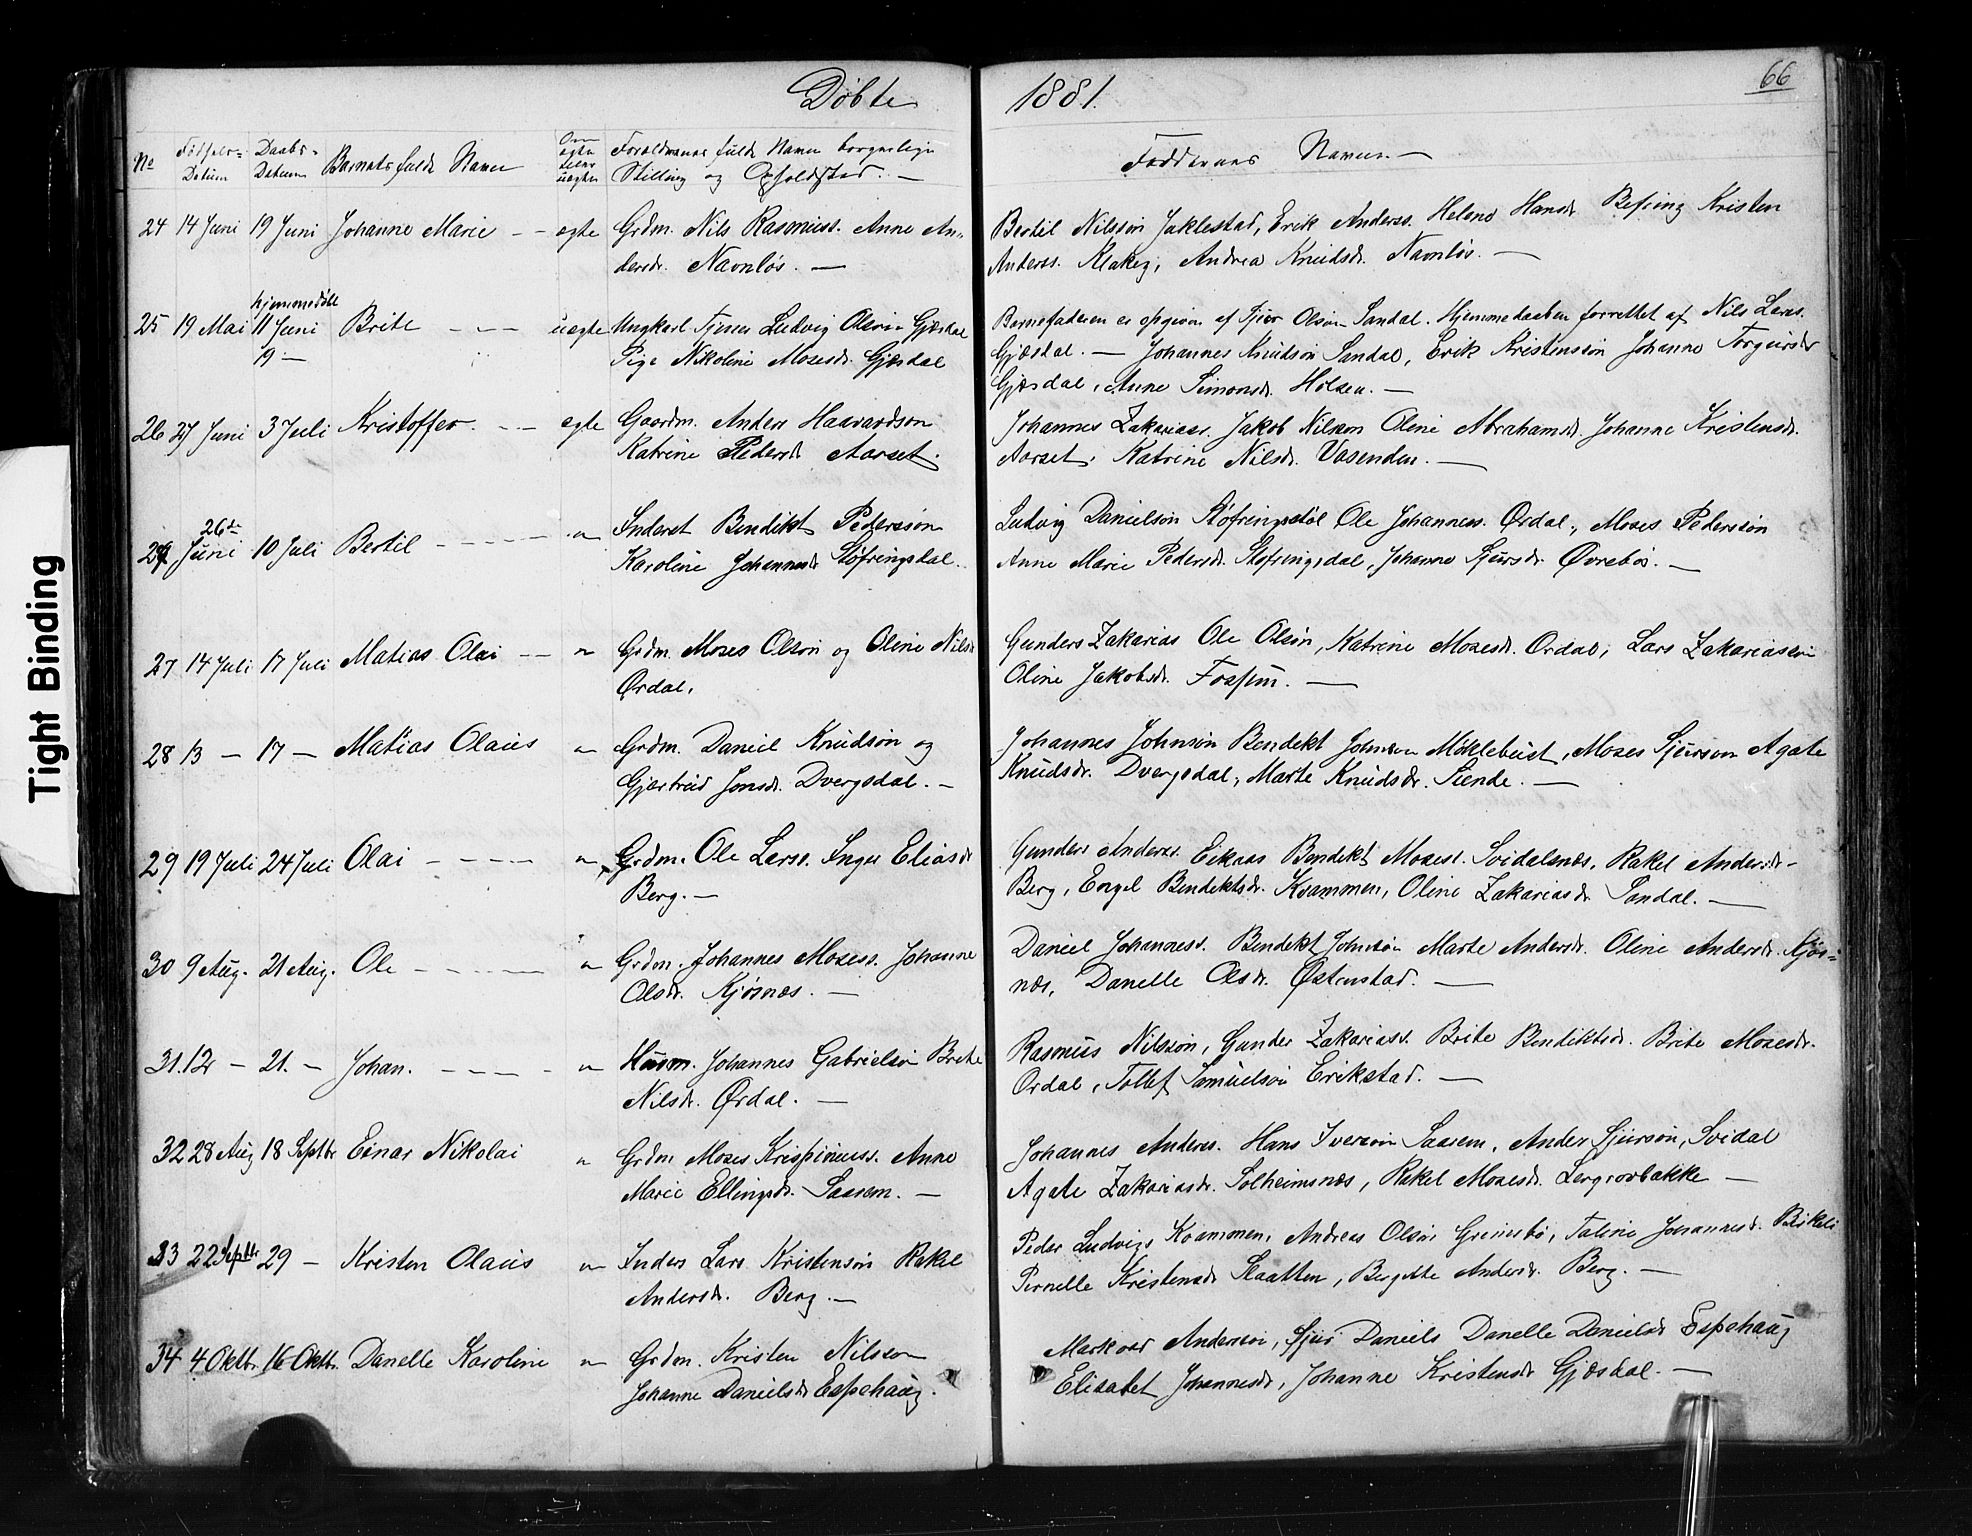 Døbte 1881. 66
No Fødsels- Datum Daabs- Datum Barnets fulde Navn Om ægte eller uægte Forældrenes fulde Navn borgerlige Stilling og Opholdsted. —
Faddernes Navne. —
24 14 Juni 19 Juni Johanne Marie — — ægte Grdm. Nils Rasmuss. Anne An-
dersdr. Navnløs. —
Bertil Nilssön Jaklestad, Erik Anderss. Helene Hansdr. Kristen
Anderss. Klakeg, Andrea Knudsdr. Navnløs. —
25 19 Mai hjemmedøbt 11 Juni Brite — — — uægte Ungkarl Tjener Ludvig Olsön Gjæsdal
19 — Pige Nikoline Mosesdr. Gjæsdal
Barnefaderen er opgiven af Sjur Olsön Sandal. Hjemmedaaben forrettet af Nils Larss.
Gjæsdal. — Johannes Knudsön Sandal, Erik Kristenssön Johanne Torgursdr
Gjæsdal, Anne Simonsdr. Holsen. —
26 27 Juni 3 Juli Kristoffer. — — ægte Gaardm. Anders Haavardson
Katrine Pedersdr Aarset.
Johannes Zakariass. Jakob Nilsson Oline Abrahamsdr. Johanne Kristensdr.
Aarset. Katrine Nilsdr. Vasenden. —
26de
Juni 10 Juli Bertil — — — — " Inderst Bendikt Pederssön
Karoline Johannesdr Støfringsdal.
Ludvig Danielsön Støfringsstøl Ole Johanness. Ørdal, Moses Pederssön
Anne Marie Pedersdr. Støfringsdal, Johanne Sjursdr. Øvrebö. —
27 14 Juli 17 Juli Matias Olai — — " Grdm. Moses Olsön og Oline Nilsdr
Ørdal.
Gunders Zakarias Ole Olsön, Katrine Mosesdr. Ordal, Lars Zakariassön
Oline Jakobsdr. Fossum. —
28 13 — 17 — Matias Olaus " Grdm. Daniel Knudsön og
Gjertrud Jonsdr. Dvergsdal. —
Johannes Johnsön Bendikt Johnson Møklebust, Moses Sjursön Agate
Knudsdr. Dvergsdal, Marte Knudsdr. Sunde. —
29 19 Juli 24 Juli Olai — — — — " Grdm. Ole Larss. Inger Eliasdr
Berg. —
Gunder Anderss. Eikaas Bendikt Mosess. Svidalsnæs, Rakel Andersdr —
Berg, Engel Bendiktsdr. Kvammen, Oline Zakariasdr Sandal. —
30 9 Aug. 21 Aug. Ole — — — — " Grdm. Johannes Mosess. Johanne
Olsdr. Kjøsnæs. —
Daniel Johanness. Bendikt Johnsön Marte Andersdr. Oline Andersdr. Kjøs-
næs, Danelle Olsdr. Østenstad. —
31. 12 — 21. — Johan. — — — — " Husm. Johannes Gabrielsön Brite
Nilsdr. Ørdal. —
Rasmus Nilssön, Gunder Zakariass. Brite Bendiktsdr. Brite Mosesdr.
Ordal, Tollef Samuelsön Erikstad. —
32 28 Aug 18 Septbr Einar Nikolai " Grdm Moses Krispinuss. Anne
Marie Ellingsdr. Saasem. —
Johannes Anderss. Hans Iversön Saasem, Anders Sjursön, Svidal
Agate Zakariasdr. Solheimsnæs, Rakel Mosesdr. Lergrovbakke —
33 22 Septbr 29 — Kristen Olaus " Inders Lars Kristensön Rakel
Andersdr. Berg. —
Peder Ludvigs Kvammen, Andreas Olsön Grimsbö, Taline Johannesdr. Birkeli
Pernelle Kristensdr Slaatten, Bergitte Andersdr. Berg. —
34 4 Oktbr. 16 Oktbr. Danelle Karoline " Grdm. Kristen Nilsson
Johanne Danielsdr Espehaug.
Markvar Anderssön, Sjur Daniels Danelle Danielsdr Espehaug
Elisabet Johannesdr, Johanne Kristensdr Gjæsdal. —
Tight Binding